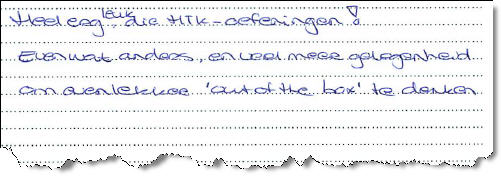 Heel erg leuk die HTK-oefeningen!
Even wat anders, en veel meer gelegenheid
om even lekker 'out of the box' te denken